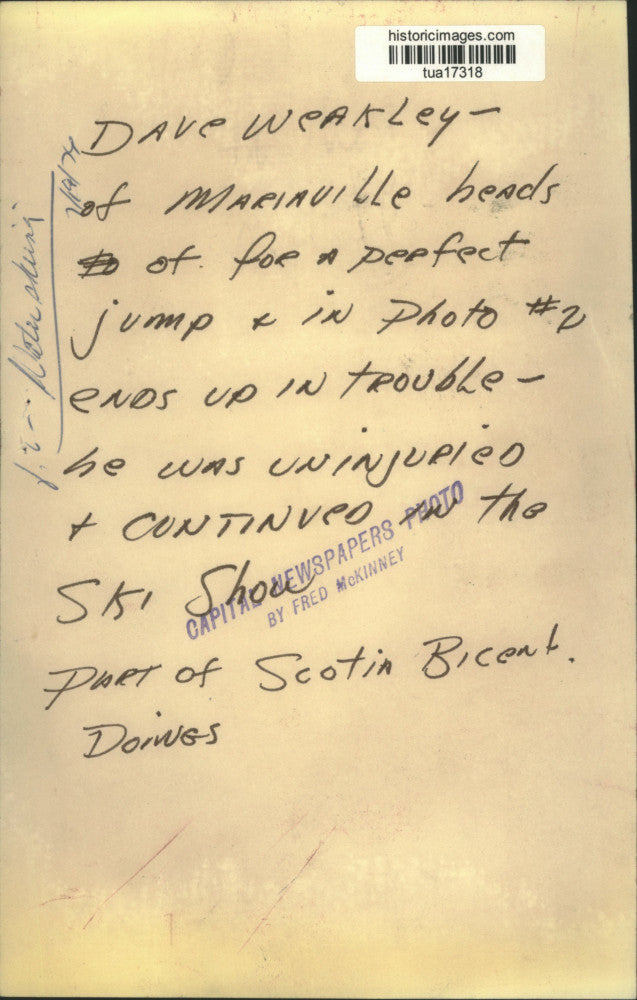 historicimages.com
tua17318
Dave Weakley -
of Mariaville heads
of. for a perfect
jump & in Photo #2
ends up in trouble -
he was uninjuried
+ continued in the
Ski Show
Part of Scotia Bicent.
Doings
CAPITAL NEWSPAPERS PHOTO
BY FRED McKINNEY
Water skiing